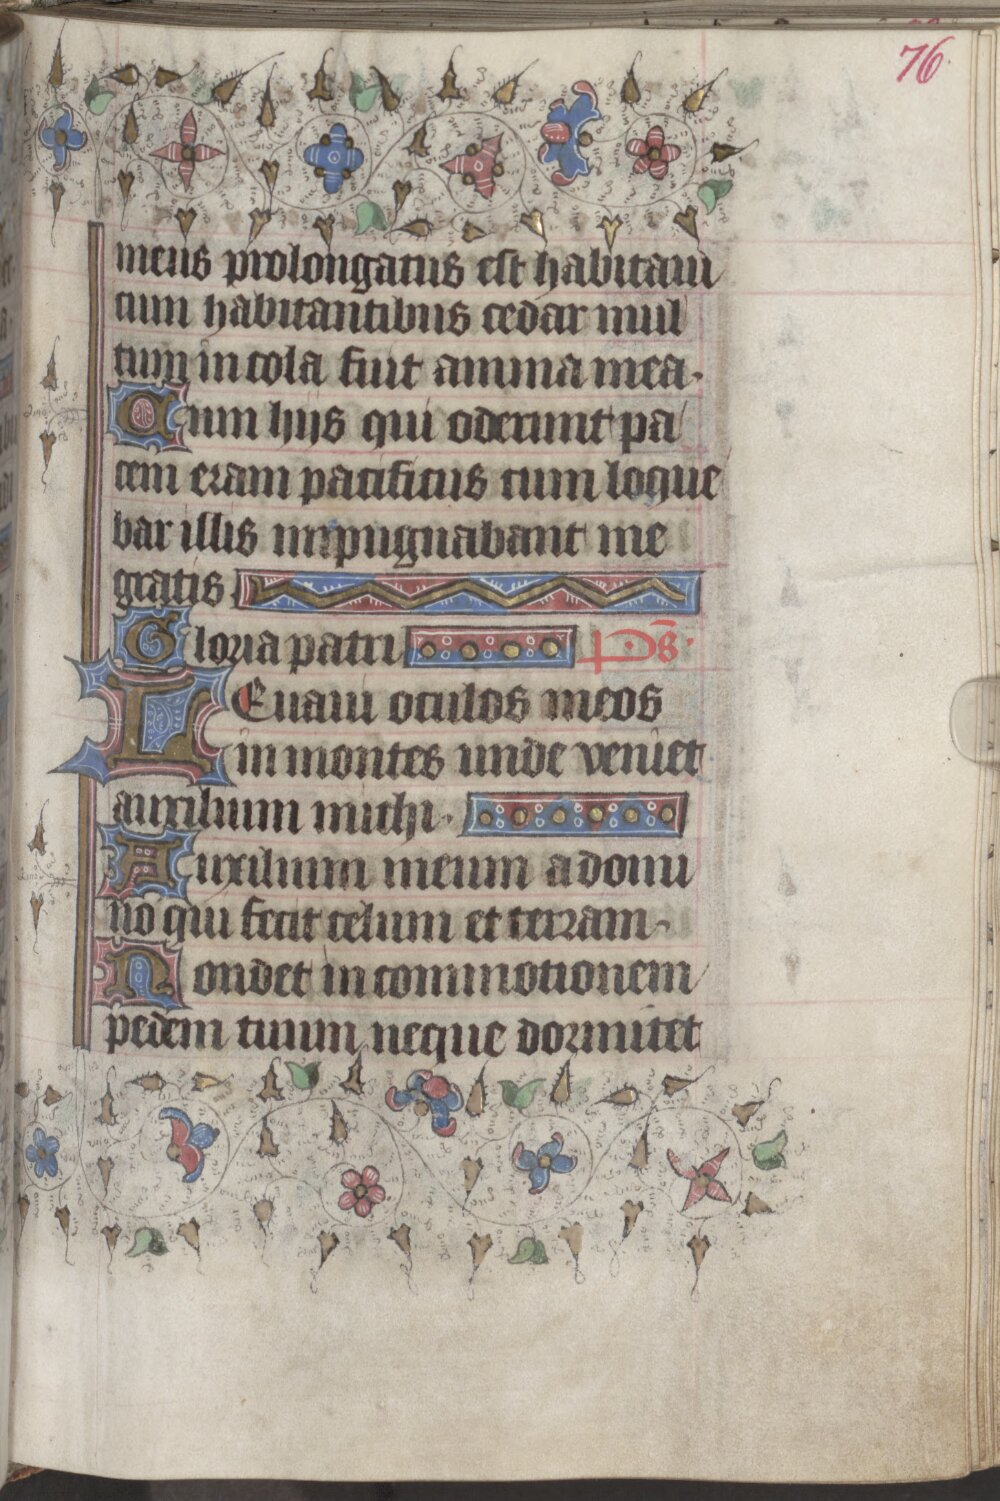 76
meus prolongatus est habitaui
cum habitantibus cedar mul
tum incola fuit amima mea.
Cum hijs qui oderunt pa
cem eram pacificus cum loque
bar illis impugnabant me
gratis
Gloria patri p̄s.
LEuaui oculos meos
in montes unde veniet
auxilium michi.
Auxilium meum a domi
no qui fecit celum et terram.
Non det in commotionem
pedem tuum neque dormitet